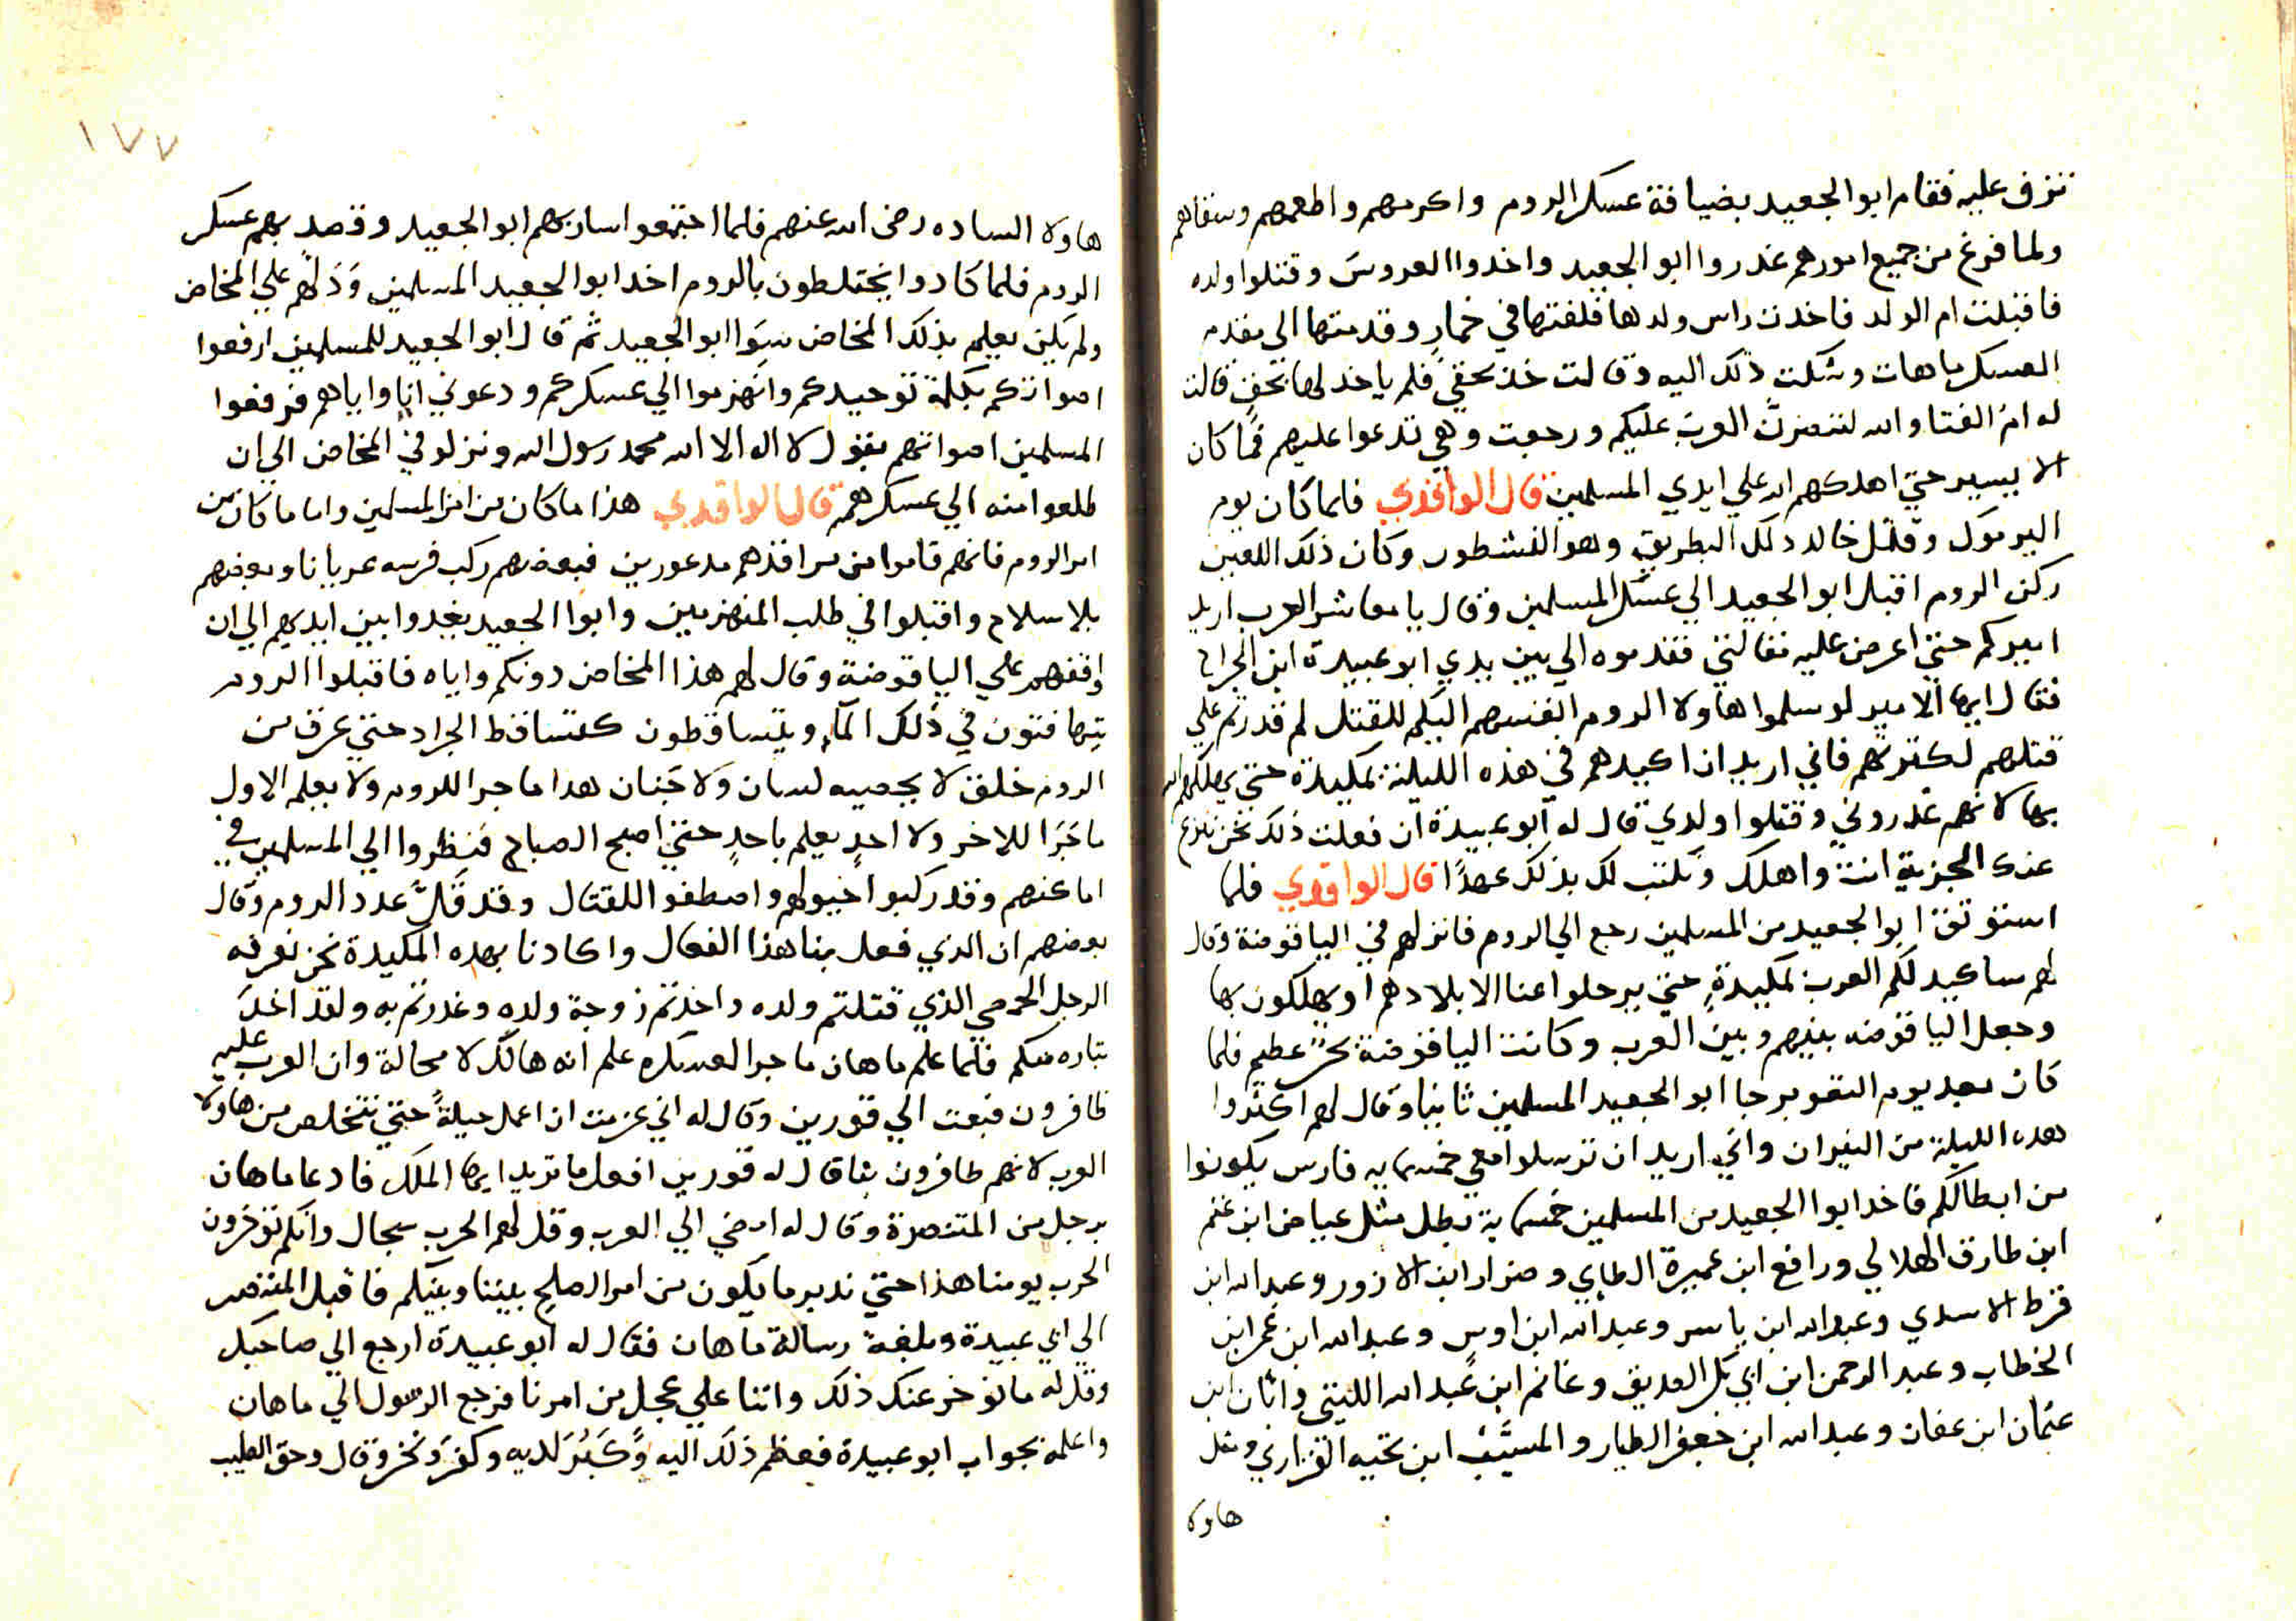 تزف عليه فقام ابو الجعيد بضيافة عسكر الروم واكرمهم واطعمهم وسقاهم
ولما فرغ من جميع امورهم غدروا ابو الجعيد واخدوا العروس وقتلوا ولده
فاقبلت ام الولد فاخدت راس ولدها فلفتها في خمار وقدمتها الى مقدم
العسكر ماهات وشكت ذلك اليه وقالت خذ بحقي فلم ياخد لها بحق قالت
له ام الفتا والله لتنصرن العرب عليكم ورجعت وهي تدعوا عليهم فما كان
الا يسير حتي اهلكهم الله علي ايدي المسلمين قال الواقدي فلما كان يوم
اليرموك وقتل خالد ذلك البطريق وهو النسطور وكان ذلك اللعين
ركن الروم اقبل ابو الجعيد الي عسكر المسلمين وقال يا معاشر العرب اريد
اميركم حتي اعرض عليه مقالتي فقدموه الي بين يدي ابو عبيدة ابن الجراح
فقال ايها الامير لو سلموا هاولا الروم انفسهم اليكم للقتل لم قدرتم علي
قتلهم لكثرتهم فاني اريد ان اكيدهم في هذه الليلة بمكيدة حتي يهلكهم الله
بها لانهم غدروني وقتلوا ولدي قال له ابو عبيدة ان فعلت ذلك نحن نرفع
عنك الجزية انت واهلك ونكتب لك بذلك عهدًا قال الواقدي فلما
استوثق ابو الجعيد من المسلمين رجع الي الروم فانزلهم في الياقوصة وقال
لهم ساكيد لكم العرب بمكيدةٍ حتي يرحلوا عنا الا بلادهم او يهلكون بها
وجعل الياقوصه بينهم وبين العرب وكانت الياقوصة بحر عظيم فلما
كان بعد يوم التعوير جا ابو الجعيد المسلمين ثانيا وقال لهم اكثروا
هده الليلة من النيران واني اريد ان ترسلوا معي خمسمايه فارس يكونوا
من ابطالكم فاخد ابوا الجعيد من المسلمين خمسماية بطل مثل عياض ابن غنم
ابن طارق الهلالي ورافع ابن عميرة الطاي وضرار ابن الازور وعبد الله ابن
قرط الاسدي وعبد الله ابن ياسر وعبد الله ابن اوس وعبد الله ابن عمر ابن
الخطاب وعبد الرحمن ابن ابي بكر الصديق وغانم ابن عبد الله الليثي وابان ابن
عثمان ابن عفان وعبد الله ابن جعفر الطيار والمسيّب ابن نجيه الفزاري ومثل
هاولا
١٧٧
هاولا الساده رضى الله عنهم فلما اجتمعوا سار بهم ابو الجعيد وقصد بهم عسكر
الروم فلما كادوا يختلطون بالروم اخد ابو الجعيد المسلمين ودَلهُم علي المخاض
ولم يكن يعلم بذلك المخاض سِوَا ابو الجعيد ثم قال ابو الجعيد للمسلمين ارفعوا
اصواتكم بكلمة توحيدكم وانهزموا الي عسكركم ودعوني انا واياهم فرفعوا
المسلمين اصواتهم بقول لا اله الا الله محمد رسول الله ونزلو في المخاض الي ان
طلعوا منه الي عسكرهم قال الواقدي هذا ما كان من امر المسلمين واما ما كان من
امر الروم فانهم قاموا من مراقدهم مدعورين فبعضهم ركب فرسه عريانا وبعضهم
بلا سلاح واقبلوا في طلب المنهزمين وابوا الجعيد يغدوا بين ايديهم الي ان
اوقفهم علي الياقوصة وقال لهم هذا المخاض دونكم واياه فاقبلوا الروم
يتهافتون في ذلك المآء ويتساقطون كتساقط الجراد حتي غرق من
الروم خلق لا يحصيه لسان وَلا جَنان هدا ما جرا للروم ولا يعلم الاول
ما جَرَا للاخر ولا احدٍ يعلم باحدٍ حتي اصبح الصباح فنظروا الي المسلمين في
اماكنهم وقد ركبوا خيولهم واصطفوا للقتال وقد قَلَّ عدد الروم وقال
بعضهم ان الذي فعل بنا هذا الفعال واكادنا بهده المكيدة نحن نعرفه
الرجل الحمصي الذي قتلتم ولده واخدتم زوجة ولده وغدرتم به ولقد اخدَ
بتاره منكم فلما علم ماهان ما جرا لعسكره علم انه هالك لا محالة وان العرب عليه
ظافرون فبعت الي قورين وقال له اني عزمت ان اعمل حيلةً حتي نتخلص من هاولا
العرب لانهم ظافرون بنا قال له قورين افعل ما تريد ايها الملك فادعا ماهان
برجل من المتنصرة وقال له امضي الي العرب وقل لهم الحرب سجال وانكم توخرون
الحرب يومنا هذا حتي ندبر ما يكون من امر الصلح بيننا وبينكم فاقبل المتنصر
الي ابي عبيدة وبلغه رسالة ماهان فقال له ابو عبيدة ارجع الي صاحبك
وقل له ما نوخر عنك ذلك واننا علي عجل من امرنا فرجع الرسول الي ماهان
واعلمه بجواب ابو عبيدة فعظم ذلك اليه وَكَبُرَ لديه وكفرَ ونخر وقال وحق الصليب